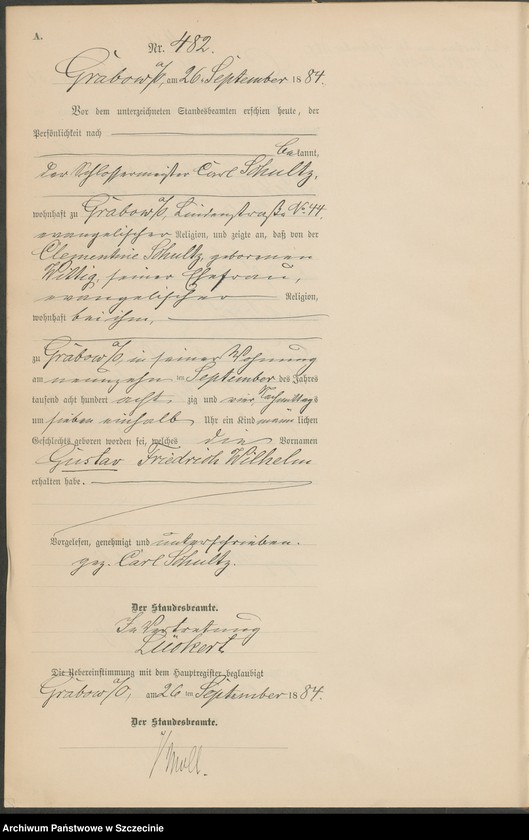 A.
Nr. 482.
Grabow a/O, am 26. September 1884.
Vor dem unterzeichneten Standesbeamten erschien heute, der
Persönlichkeit nach
bekannt,
der Schlossermeister Carl Schultz,
wohnhaft zu Grabow a/O, Lindenstraße No. 44,
evangelischer Religion, und zeigte an, daß von der
Clementine Schultz, geborenen
Wittig, seiner Ehefrau,
evangelischer Religion,
wohnhaft bei ihm,
zu Grabow a/O, in seiner Wohnung
am neunzehn ten September des Jahres
tausend acht hundert acht zig und vier, Nachmittags
um sieben einhalb Uhr ein Kind männlichen
Geschlechts geboren worden sei, welches die Vornamen
Gustav Friedrich Wilhelm
erhalten habe.
Vorgelesen, genehmigt und unterschrieben.
gez. Carl Schultz.
Der Standesbeamte.
In Vertretung
Lückert
Die Uebereinstimmung mit dem Hauptregister beglaubigt
Grabow a/O, am 26 ten September 1884.
Der Standesbeamte.
Moll.
Archiwum Państwowe w Szczecinie